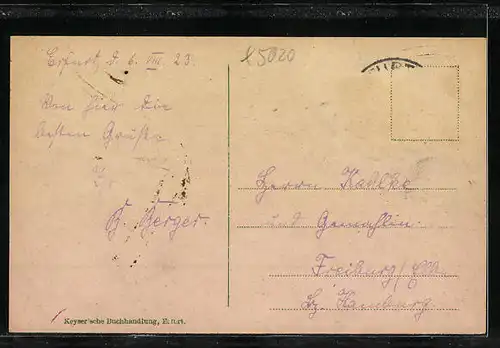 Erfurt d. 6. VIII. 23.
Von hier die
besten Grüße
G. Berger.
Herrn Kahlke
und Gemahlin.
Freiburg/Elb.
bz. Hamburg.
Keyser'sche Buchhandlung, Erfurt.